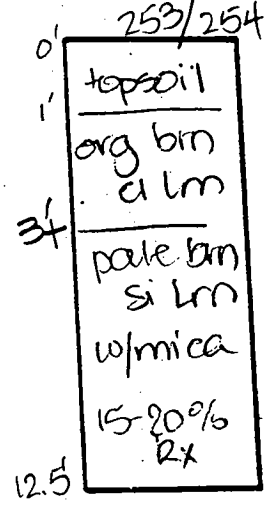 253/254
0'
topsoil
1'
org brn
cl lm
3'+
pale brn
si lm
w/mica
15-20%
Rx
12.5'